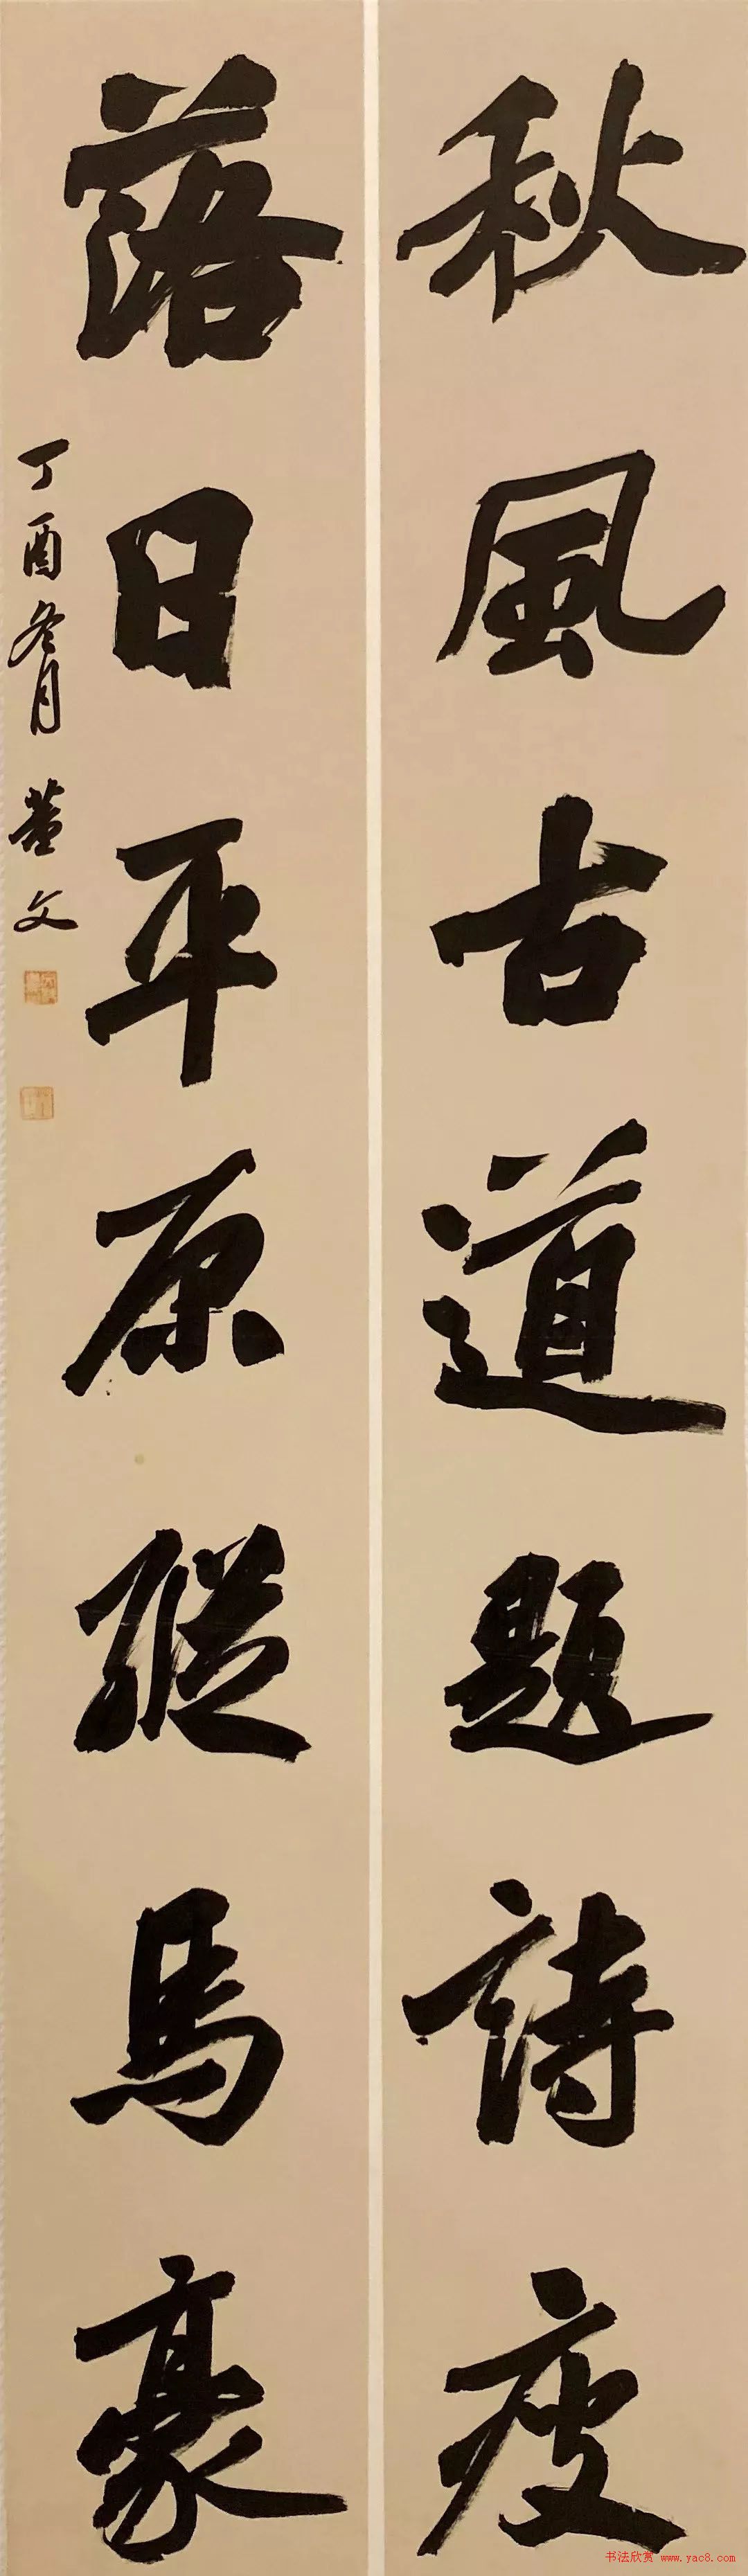 秋風古道題詩瘦
落日平原縱馬豪
丁酉冬月 董文
书法欣赏 www.yac8.com